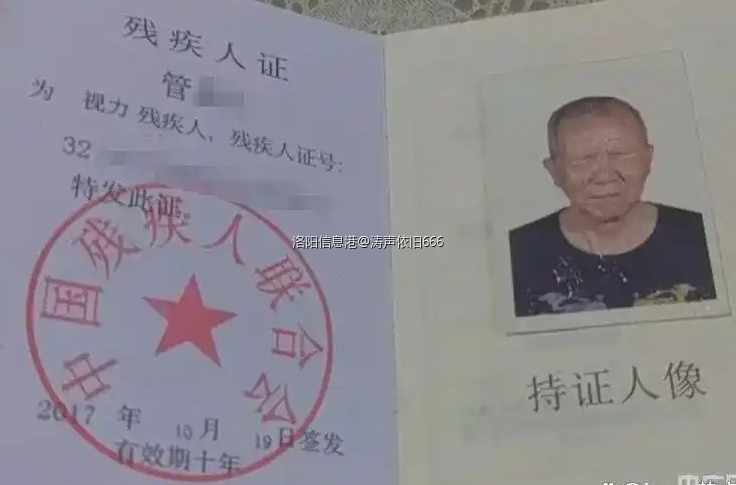 残疾人证
管
为 视力 残疾人，残疾人证号:
32
特发此证。
中国残疾人联合会
2017 年 10 月 19 日签发
有效期十年
洛阳信息港@涛声依旧666
持证人像